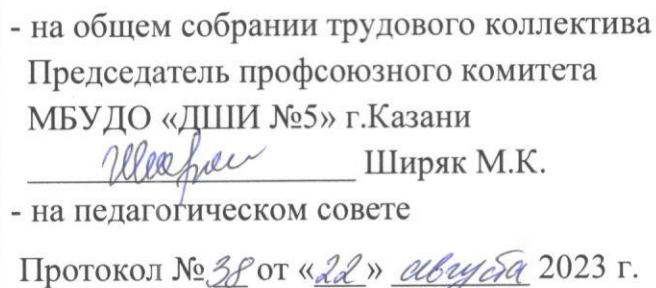 - на общем собрании трудового коллектива
Председатель профсоюзного комитета
МБУДО «ДШИ №5» г.Казани
Ширяк М.К.
- на педагогическом совете
Протокол № 38 от «22» августа 2023 г.